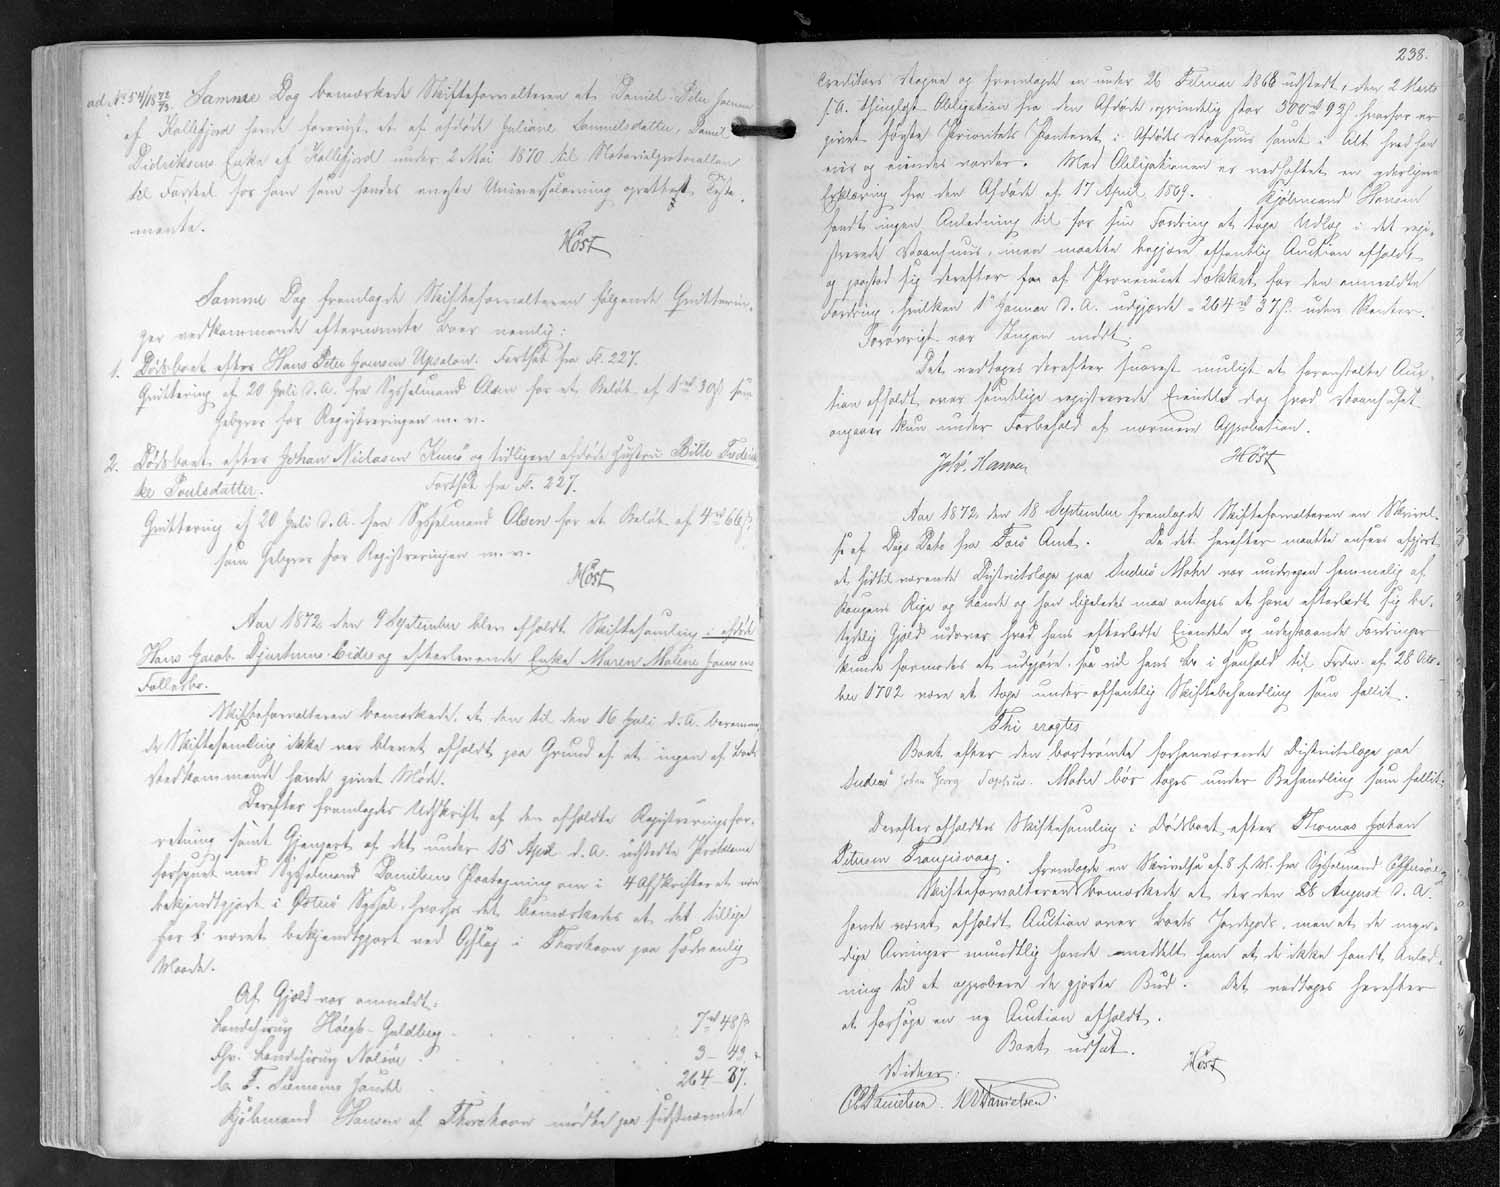 ad. No 54/18 72/73. Samme Dag bemærkede Skifteforvalteren at Daniel Peter Joensen
af Kollefjord havde foreviist et af afdøde Juliane Samuelsdatter, Daniel
Didriksens Enke af Kollefjord under 2 Mai 1870 til Notarialprotocollen
til Fordeel for ham som hendes eneste Universalarving oprettet Testa-
mente.
Høst
Samme Dag fremlagde Skifteforvalteren følgende Qvitterin-
ger vedkommende efternævnte Boer nemlig:
1. Dødsboet efter Hans Peter Joensen Upsalon. Fortsat fra Fl. 227.
Qvittering af 20 Juli d. A. fra Sysselmand Olsen for et Beløb af 1 rd 30 ß som
Gebyrer for Registreringen m. v.
2. Dødsboet efter Johan Niclasen Kunø og tidligere afdøde Hustru Bille Frederik-
ke Poulsdatter. Fortsat fra Fl. 227.
Qvittering af 20 Juli d. A. fra Sysselmand Olsen for et Beløb af 4 rd 66 ß.
som Gebyrer for Registreringen m. v.
Høst
Aar 1872 den 9 September blev afholdt Skiftesamling i afdøde
Hans Jacob Djurhuus Eide og efterlevende Enke Maren Malene Joensens
Fællesbo.
Skifteforvalteren bemærkede, at den til den 16 Juli d. A. beramme-
de Skiftesamling ikke var blevet afholdt paa Grund af at ingen af Boets
Vedkommende havde givet Møde.
Derefter fremlagdes Udskrift af den afholdte Registreringsfor-
retning samt Gjenpart af det under 15 April d. A. udstedte Proklama
forsynet med Sysselmand Danielsens Paategning om i 4 Afskrifter at være
bekjendtgjort i Østerø Syssel, hvorhos det bemærkedes at det tillige
her er været bekjendtgjort ved Opslag i Thorshavn paa sædvanlig
Maade.
Af Gjæld var anmeldt:
Landchirurg Høegh-Guldberg . . . 7 rd 48 ß
Fhv. Landchirurg Nolsøe . . . 3 – 43
C. F. Siemsens Handel . . . 264 – 37.
Kjøbmand Hansen af Thorshavn mødte paa sidstnævnte
238.
Creditors Vegne og fremlagde en under 26 Februar 1868 udstedt, den 2 Marts
s. A. thinglæst Obligation fra den Afdøde oprindelig stor 500 rd 92 ß hvorfor er
givet første Prioritets Panteret i Afdødes Vaaahuus samt i Alt hvad han
eier og eiendes vorder. Med Obligationen er vedhæftet en yderligere
Erklæring fra den Afdøde af 17 April 1869. Kjøbmand Hansen
fandt ingen Anledning til for sin Fordring at tage Udlæg i det regi-
strerede Vaaahuus, men maatte begjære offentlig Auction afholdt
og paastod sig derefter fra af Provenuet dækket for den anmeldte
Fordring, hvilken 1ste Januar d. A. udgjorde = 264 rd 37 ß uden Renter.
Forøvrigt var Ingen mødt.
Det vedtoges derefter snarest muligt at foranstalte Auc-
tion afholdt over samtlige registrerede Eiendele dog hvad Vaanhuset
angaaer kun under Forbehold af nærmere Approbation.
Johs. Hansen Høst
Aar 1872 den 18 September fremlagde Skifteforvalteren en Skrivel-
se af Dags Dato fra Færø Amt. Da det herefter maatte ansees afgjort
at hidtil værende Districtslæge paa Suderø Mohr var undvegen hemmelig af
Kongens Rige og Lande og han ligeledes maa antages at have efterladt sig be-
tydelig Gjæld udover hvad hans efterladte Eiendele og udestaaende Fordringer
kunde formodes at udgjøre, saa vil hans Bo i Henhold til Frdn. af 28 Okto-
ber 1702 være at tage under offentlig Skiftebehandling som fallit.
Thi eragtes
Boet efter den bortrømte forhenværende Districtslæge paa
Suderø Johan Georg Mohr bør tages under Behandling som fallit.
Derefter afholdtes Skiftesamling i Dødsboet efter Thomas Johan
Petersen Frangisvaag. Fremlagde en Skrivelse af 8 s. M. fra Sysselmand
Skifteforvalteren bemærkede at der den 28 August d. A.
havde været afholdt Auction over Boets Jordegods, men at de myn-
dige Arvinger mundtlig havde meddelt ham at de ikke fandt Anled-
ning til at approbere de gjorte Bud. Det vedtoges herefter
at forsøge en ny Auction afholdt.
Boet udsat.
Høst
Vidner:
Danielsen. Danielsen.